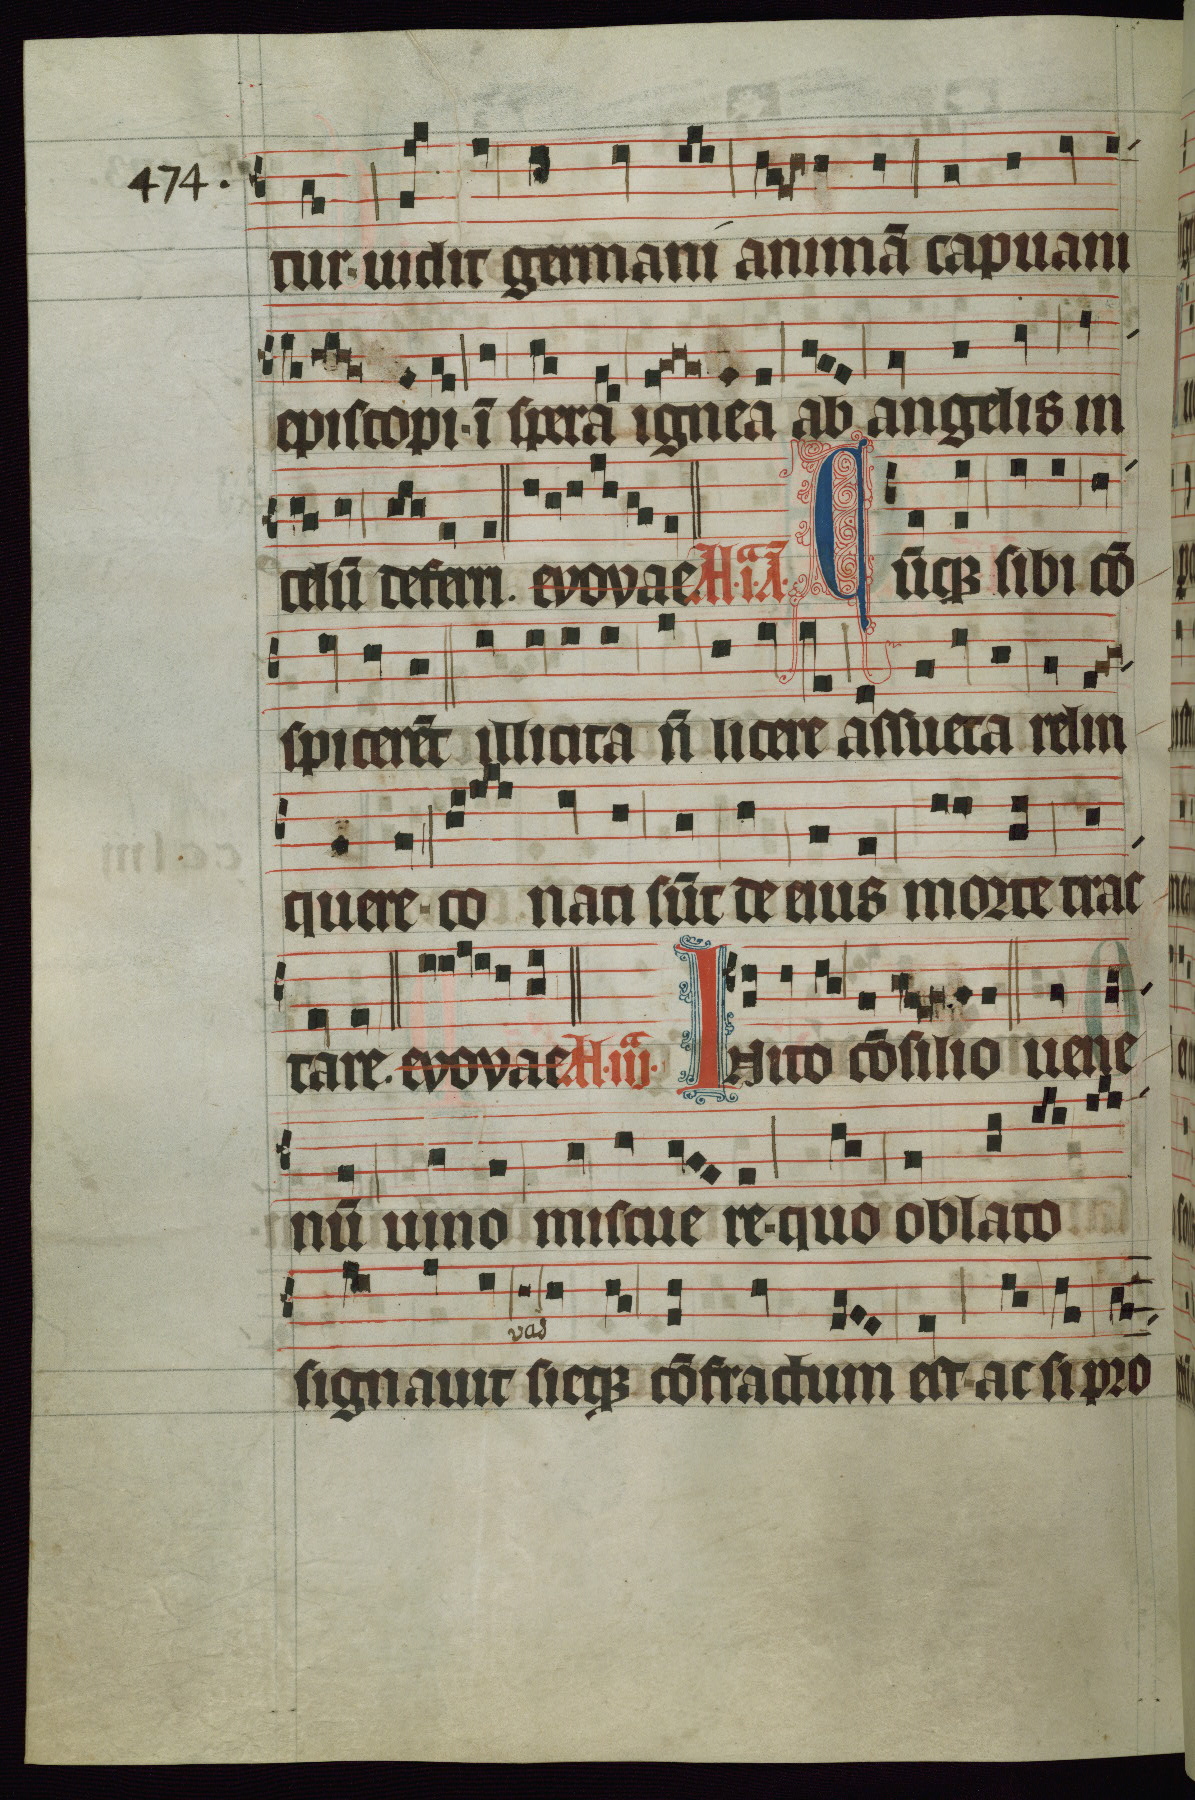 474.
tur·uidit germani animā capuani
episcopi·ī spera ignea ab angelis in
celū deferri. evovae A·i·A·
Qūqꝫ sibi cō
spicerēt illicita ñ licere assueta relin
quere·co nati sūt de eius morte trac
tare. evovae A·iij· Inito cōsilio uene
nū uino miscue re·quo oblato
vas
signauit sicqꝫ cōfractum est·ac si pro